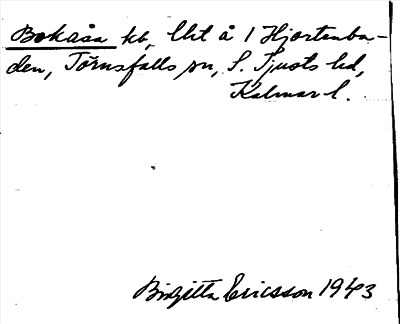 Bokåsa kb, Ut å 1 Hjortenba-
den, Törnsfalls sn, S. Tjusts hd,
Kalmar l.
Birgitta Ericsson 1943